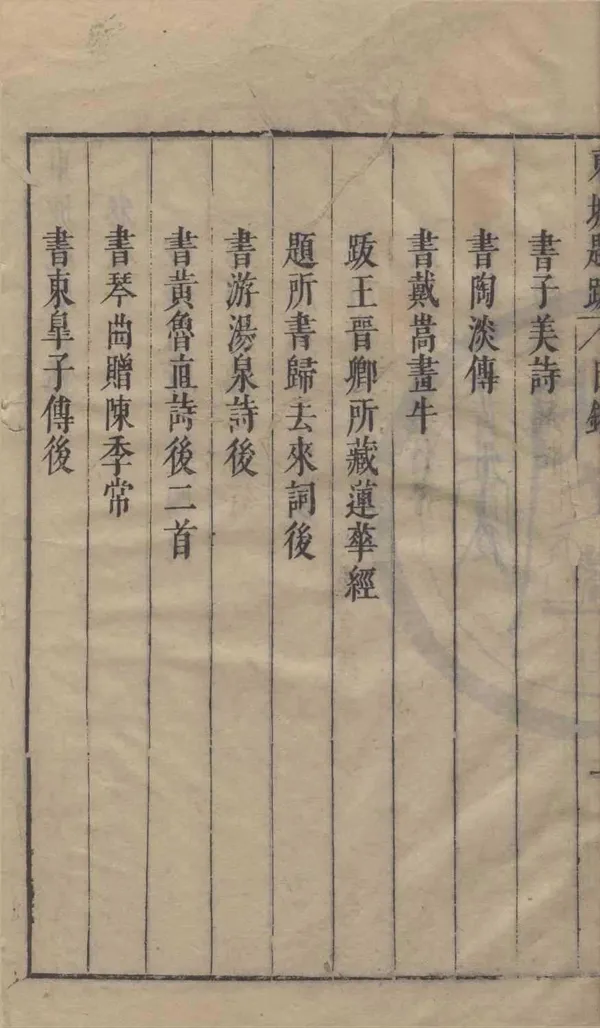 東坡題跋 目錄
書子美詩
書陶淡傳
書戴嵩畫牛
跋王晉卿所藏蓮華經
題所書歸去來詞後
書游湯泉詩後
書黃魯直詩後二首
書琴曲贈陳季常
書東臯子傳後